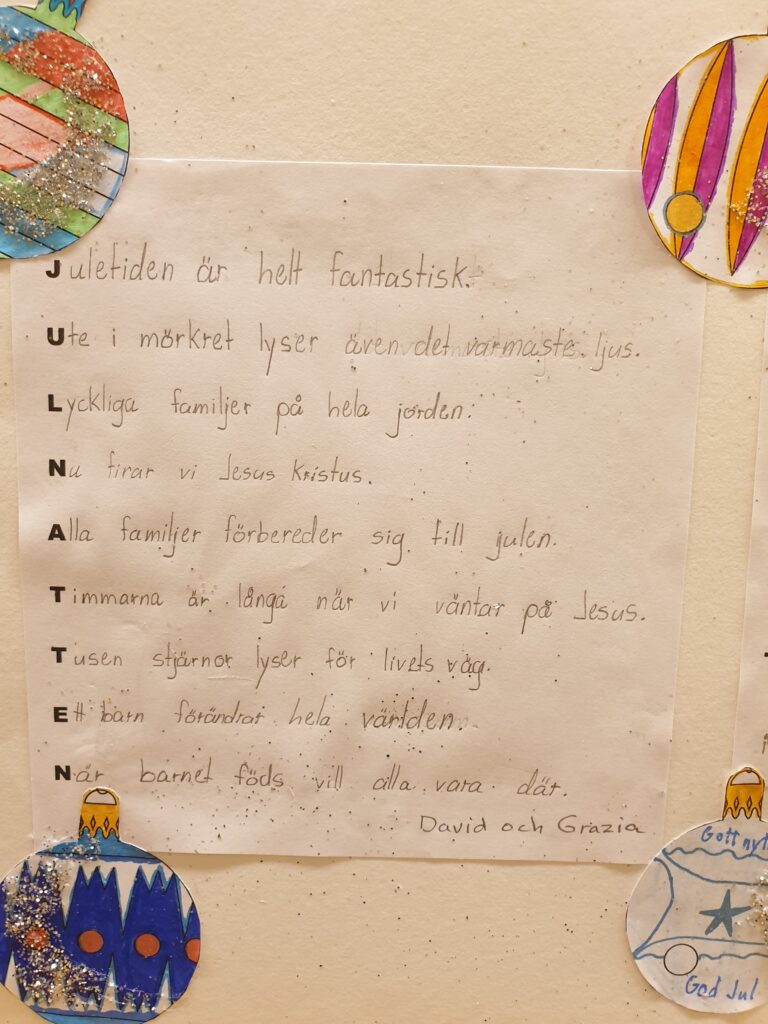 Juletiden är helt fantastisk.
Ute i mörkret lyser även det varmaste ljus.
Lyckliga familjer på hela jorden.
Nu firar vi Jesus Kristus.
Alla familjer förbereder sig till julen.
Timmarna är långa när vi väntar på Jesus.
Tusen stjärnor lyser för livets väg.
Ett barn förändrar hela världen.
När barnet föds vill alla vara där.
David och Grazia
Gott nytt
God Jul